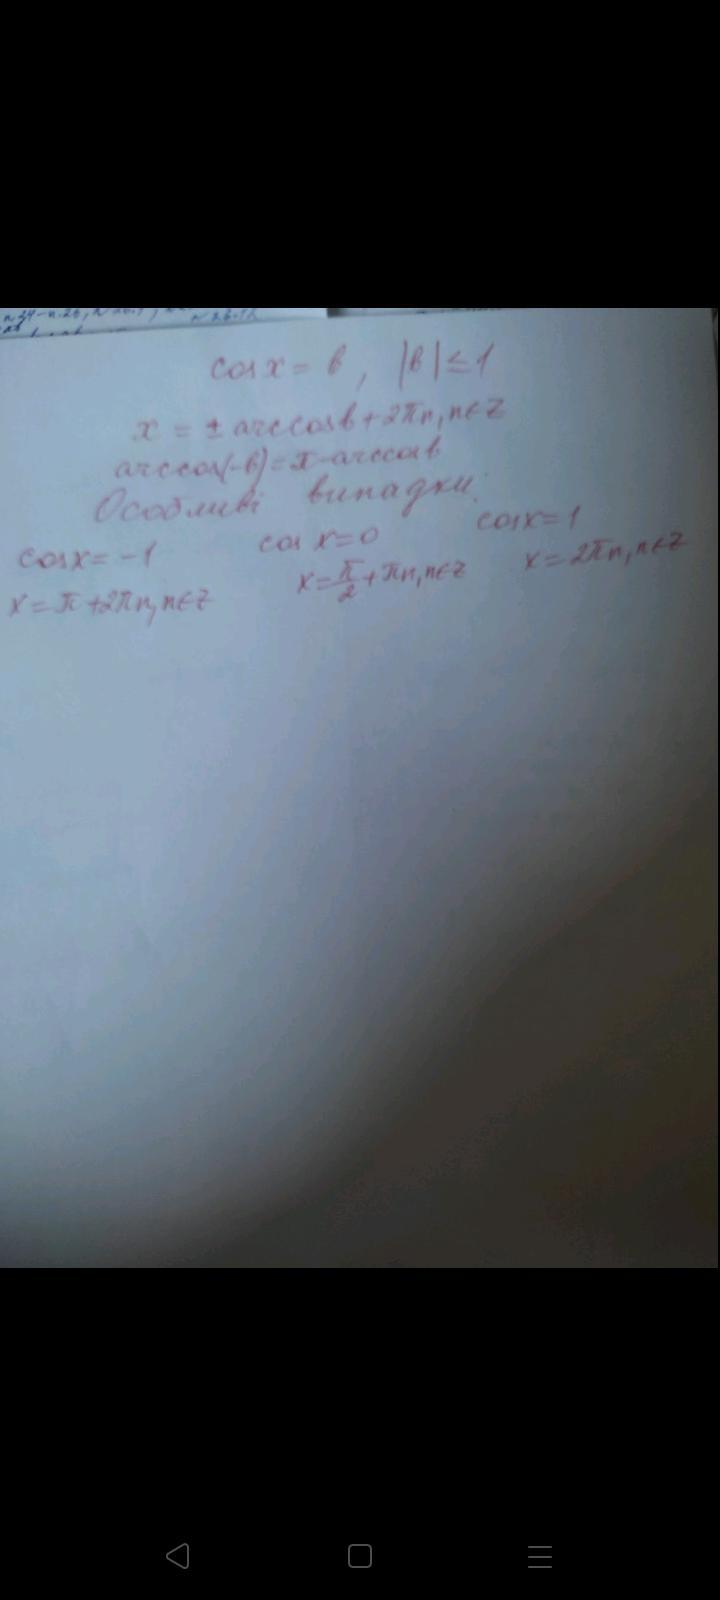 cos x = b, |b| ≤ 1
x = ± arccos b + 2πn, n ∈ Z
arccos(-b) = π - arccos b
Особливі випадки.
cos x = -1 cos x = 0 cos x = 1
x = π + 2πn, n ∈ Z x = π/2 + πn, n ∈ Z x = 2πn, n ∈ Z